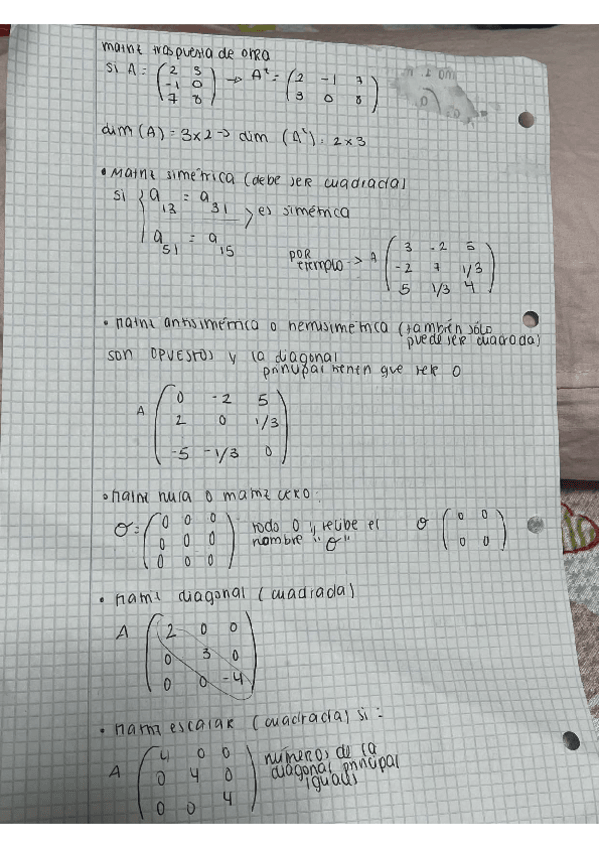 matriz traspuesta de otra
si A = ( 2 3 ) → Aᵗ = ( 2 -1 7 )
( -1 0 ) ( 3 0 8 )
( 7 8 )
dim (A) = 3x2 → dim (Aᵗ) = 2x3
• Matriz simétrica (debe ser cuadrada)
si { a₁₃ = a₃₁ > es simétrica
a₅₁ = a₁₅
por ejemplo -> A ( 3 -2 5 )
( -2 7 1/3 )
( 5 1/3 4 )
• matriz antisimétrica o hemisimetrica (también sólo
puede ser cuadrada)
son opuestos y la diagonal
principal tienen que ser 0
A ( 0 -2 5 )
( 2 0 1/3 )
( -5 -1/3 0 )
• matriz nula o matriz cero:
O = ( 0 0 0 ) todo 0 y recibe el O ( 0 0 )
( 0 0 0 ) nombre "O" ( 0 0 )
( 0 0 0 )
• matriz diagonal (cuadrada)
A ( 2 0 0 )
( 0 3 0 )
( 0 0 -4 )
• matriz escalar (cuadrada) si =
A ( 4 0 0 ) números de la
( 0 4 0 ) diagonal principal
( 0 0 4 ) iguales